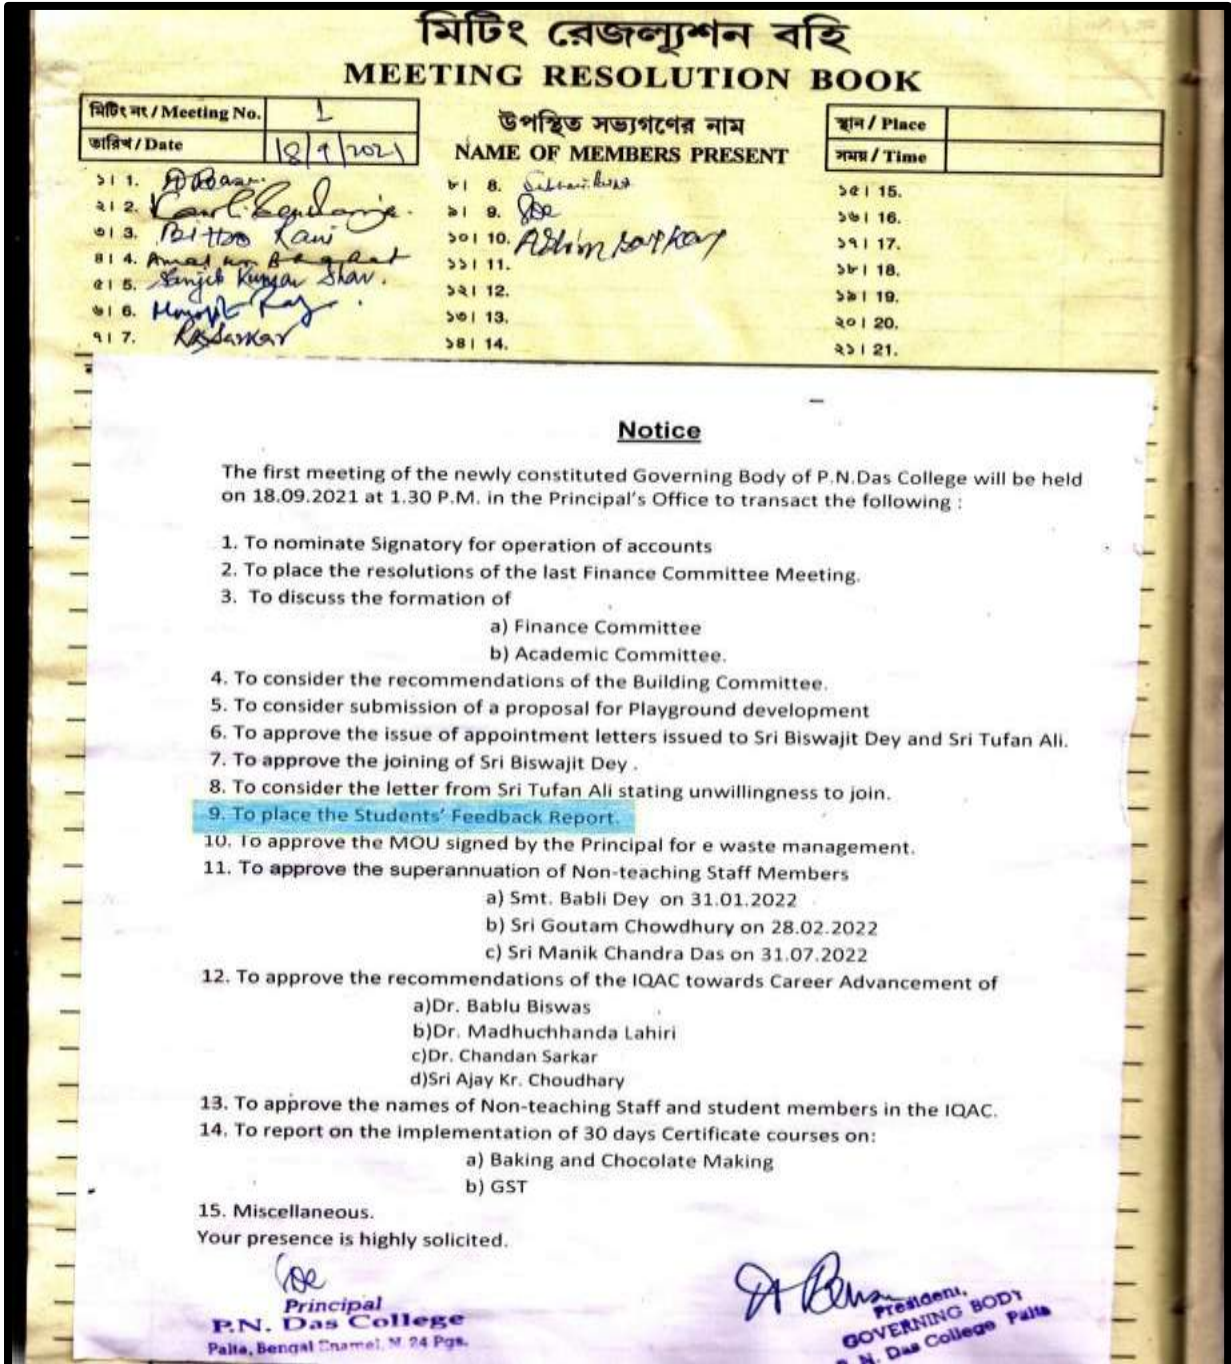 মিটিং রেজল্যুশন বহি
MEETING RESOLUTION BOOK
মিটিং নং / Meeting No. 1
তারিখ / Date 18/9/2021
উপস্থিত সভ্যগণের নাম
NAME OF MEMBERS PRESENT
স্থান / Place
সময় / Time
১। 1.
২। 2.
৩। 3. Bittoo Ravi
৪। 4.
৫। 5. Sanjib Kumar Shaw.
৬। 6. Roy
৭। 7. Sarkar
৮। 8.
৯। 9.
১০। 10. Ashim Sarkar
১১। 11.
১২। 12.
১৩। 13.
১৪। 14.
১৫। 15.
১৬। 16.
১৭। 17.
১৮। 18.
১৯। 19.
২০। 20.
২১। 21.
Notice
The first meeting of the newly constituted Governing Body of P.N.Das College will be held
on 18.09.2021 at 1.30 P.M. in the Principal's Office to transact the following :
1. To nominate Signatory for operation of accounts
2. To place the resolutions of the last Finance Committee Meeting.
3. To discuss the formation of
a) Finance Committee
b) Academic Committee.
4. To consider the recommendations of the Building Committee.
5. To consider submission of a proposal for Playground development
6. To approve the issue of appointment letters issued to Sri Biswajit Dey and Sri Tufan Ali.
7. To approve the joining of Sri Biswajit Dey .
8. To consider the letter from Sri Tufan Ali stating unwillingness to join.
9. To place the Students' Feedback Report.
10. To approve the MOU signed by the Principal for e waste management.
11. To approve the superannuation of Non-teaching Staff Members
a) Smt. Babli Dey on 31.01.2022
b) Sri Goutam Chowdhury on 28.02.2022
c) Sri Manik Chandra Das on 31.07.2022
12. To approve the recommendations of the IQAC towards Career Advancement of
a)Dr. Bablu Biswas
b)Dr. Madhuchhanda Lahiri
c)Dr. Chandan Sarkar
d)Sri Ajay Kr. Choudhary
13. To approve the names of Non-teaching Staff and student members in the IQAC.
14. To report on the implementation of 30 days Certificate courses on:
a) Baking and Chocolate Making
b) GST
15. Miscellaneous.
Your presence is highly solicited.
Principal
P.N. Das College
Palta, Bengal Enamel, N 24 Pgs.
President,
GOVERNING BODY
N. Das College Palta